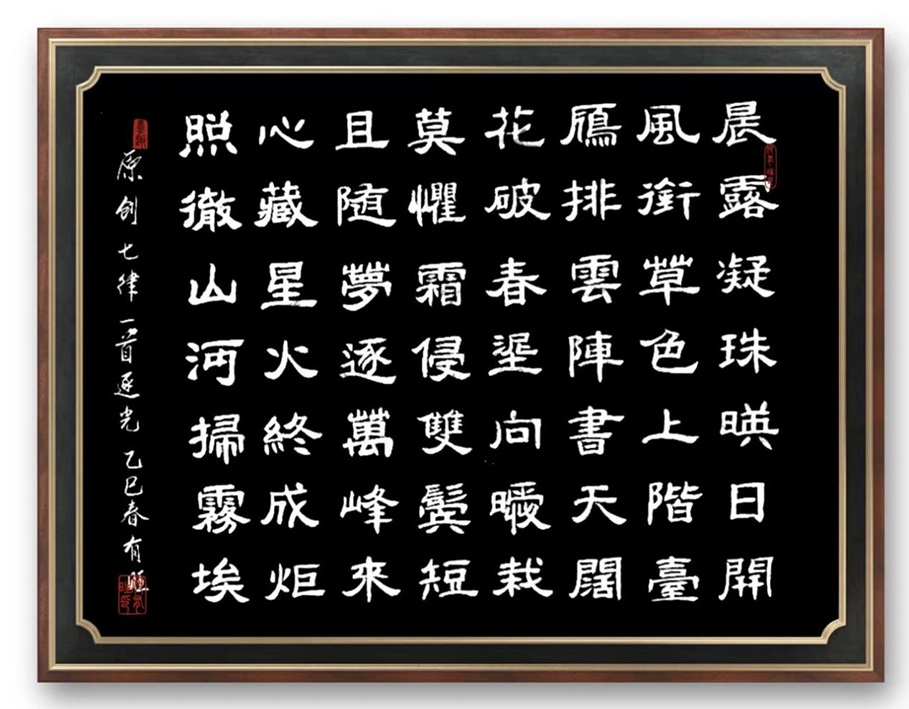 晨露凝珠暎日開
風銜草色上階臺
鴈排雲陣書天闊
花破春埿向曖栽
莫懼霜侵雙鬢短
且随夢逐萬峰來
心藏星火終成炬
照徹山河掃霧埃
原创七律一首逐光 乙巳春有